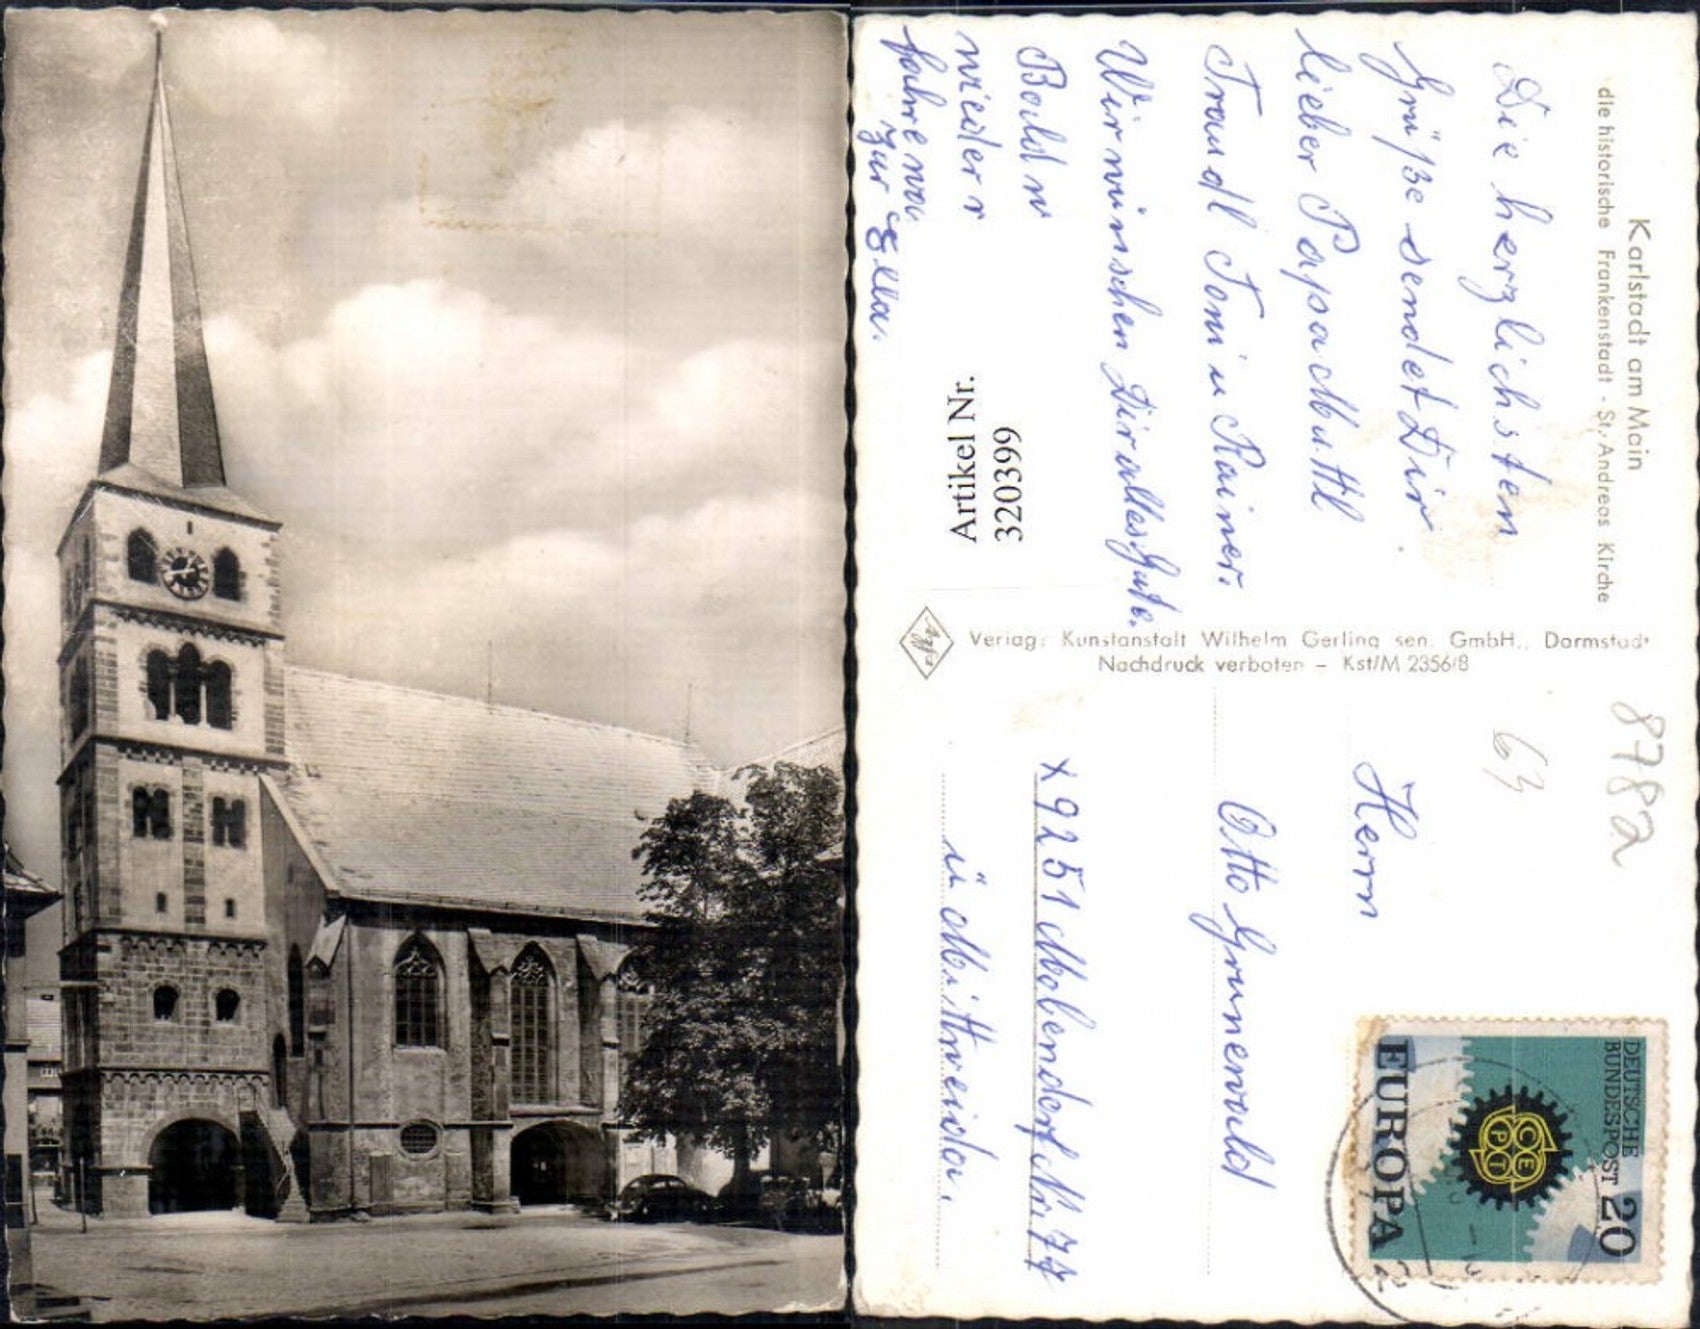 Karlstadt am Main
die historische Frankenstadt · St. Andreas Kirche
Die herzlichsten
Grüße sendet Dir
lieber Papa Muttl
Traudl Toni u Rainer.
Wir wünschen Dir alles Gute.
Bald
wieder
fahren wir
zur Ella.
Artikel Nr.
3203399
Agfa
Verlag: Kunstanstalt Wilhelm Gerling sen. GmbH., Darmstadt
Nachdruck verboten – Kst/M 2356/8
8782
63
Herrn
Otto Grunewald
x 9251 Mobendorf Nr. 77
ü Mittweida.
DEUTSCHE
BUNDESPOST 20
CEPT
EUROPA